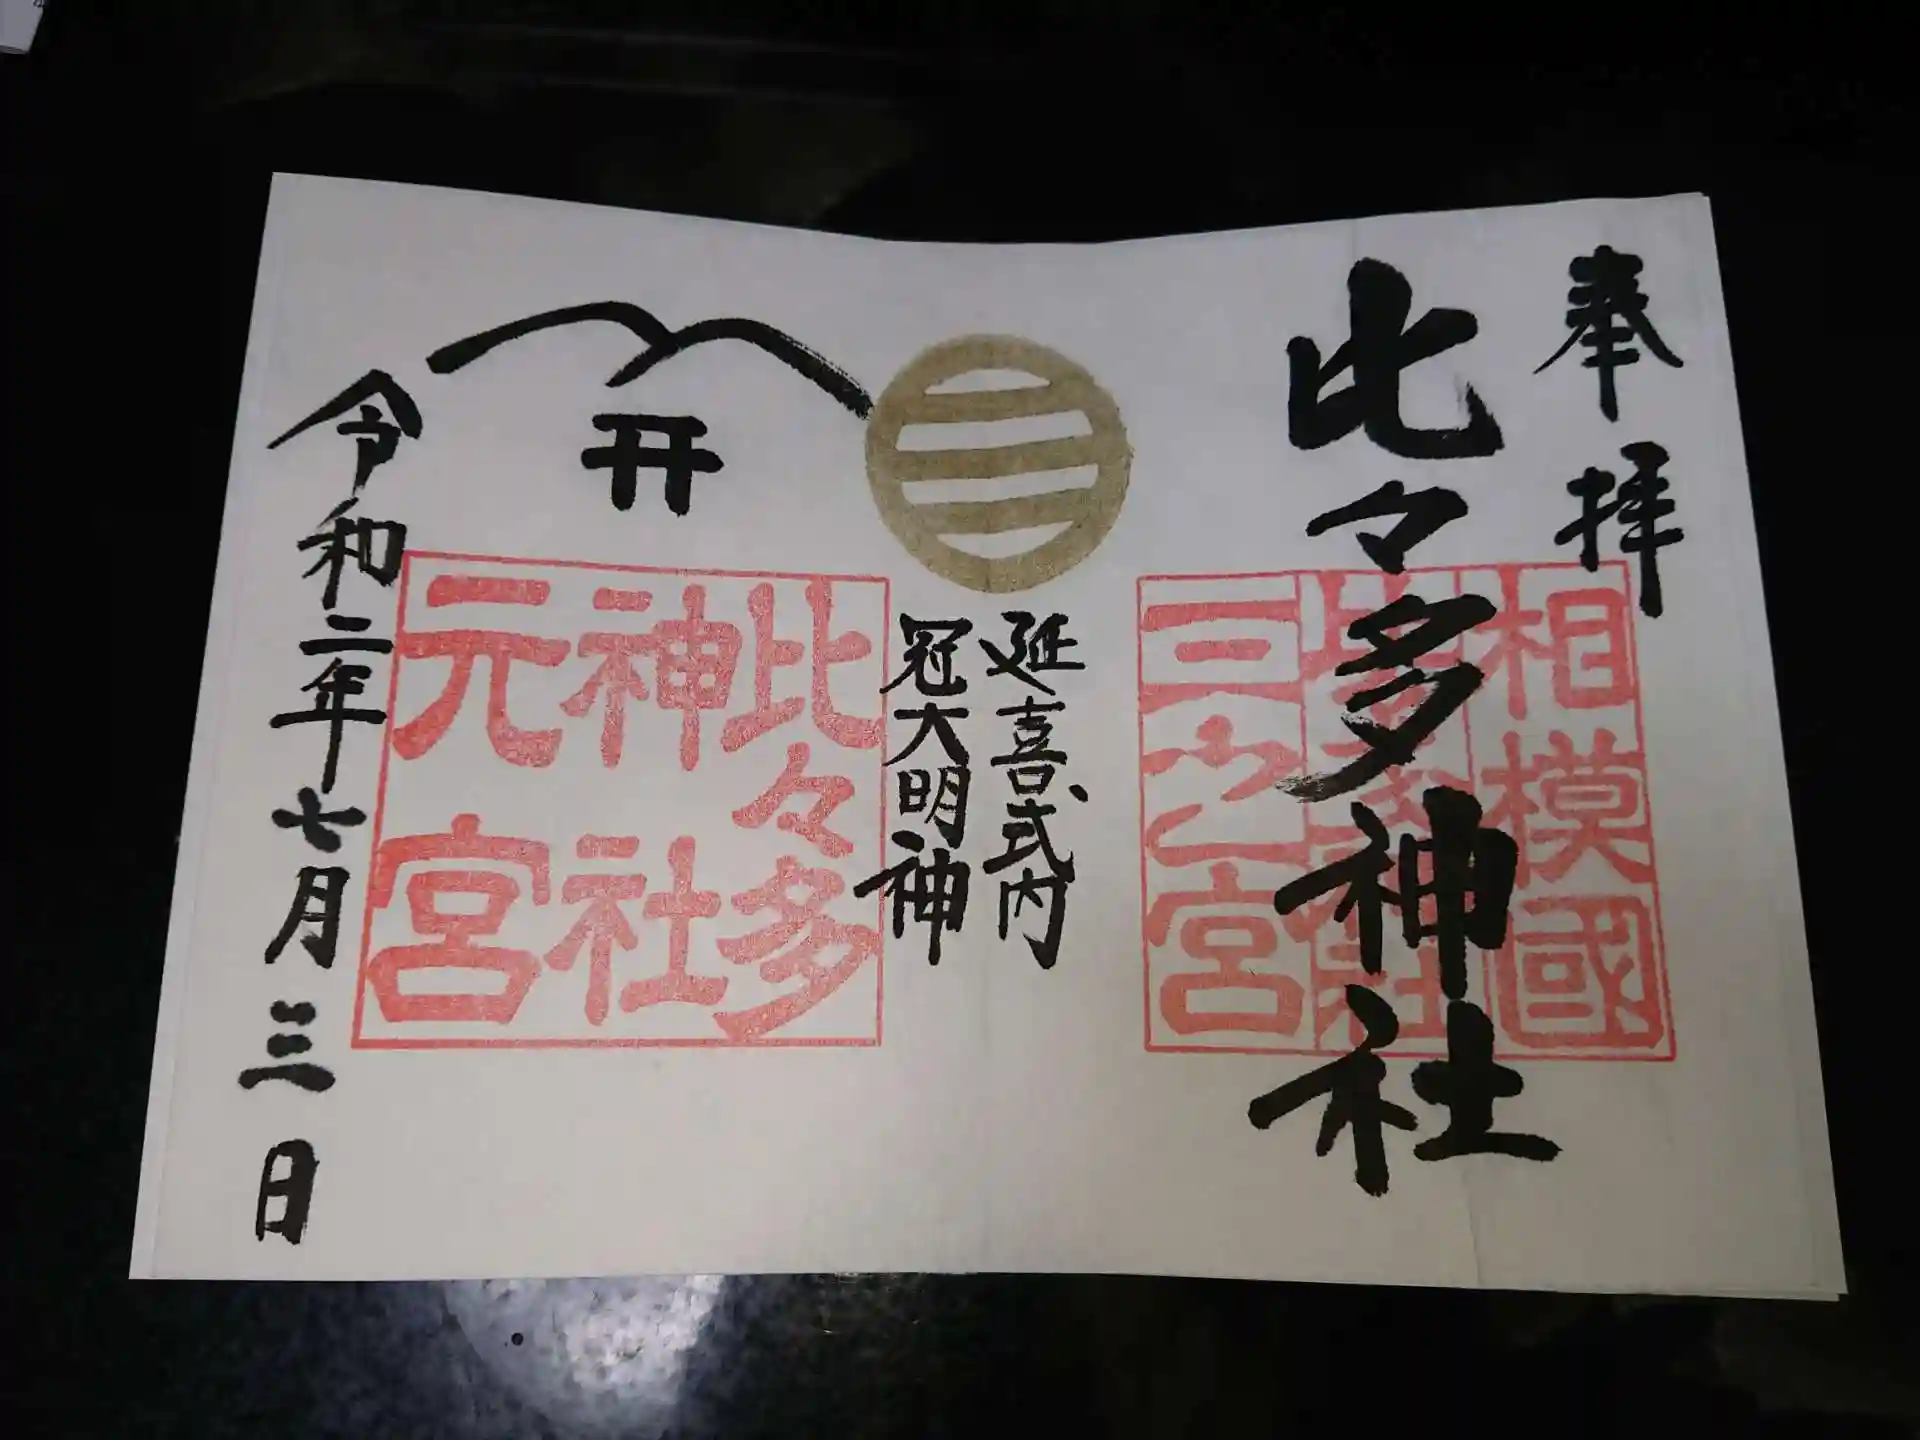 奉拝
比々多神社
相模國
比々多神社
三之宮
延喜式内
冠大明神
比々多
神社
元宮
令和二年七月三日